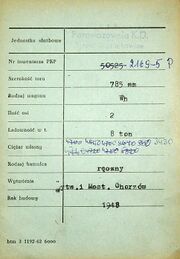 Jednostka służbowa
Parowozownia K.D.
Nr inwentarza PKP 50585 2169-5 P
Szerokość toru 785 mm
Rodzaj wagonu Wh
Ilość osi 2
Ładowność w t. 8 ton
Ciężar własny 3430
Rodzaj hamulca ręczny
Wytwórnia Wytw.i Most. Chorzów
Rok budowy 1948